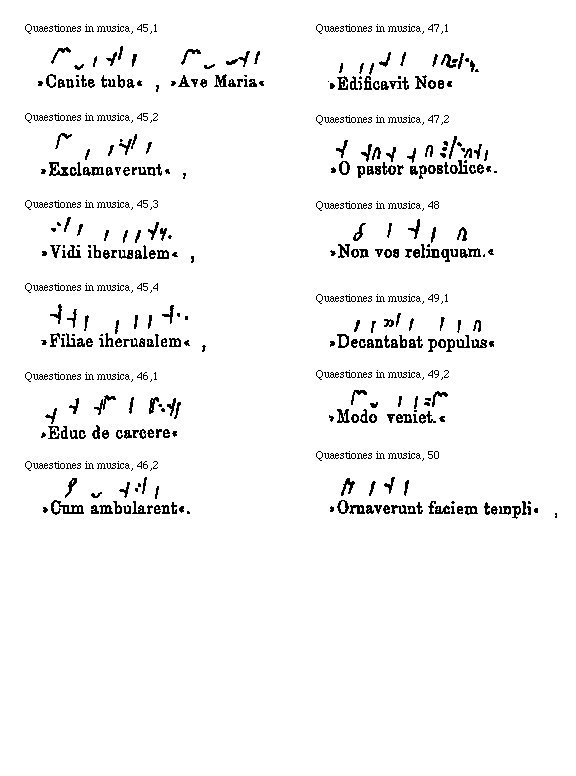 Quaestiones in musica, 45,1
»Canite tuba« , »Ave Maria«
Quaestiones in musica, 45,2
»Exclamaverunt« ,
Quaestiones in musica, 45,3
»Vidi iherusalem« ,
Quaestiones in musica, 45,4
»Filiae iherusalem« ,
Quaestiones in musica, 46,1
»Educ de carcere«
Quaestiones in musica, 46,2
»Cum ambularent«.
Quaestiones in musica, 47,1
»Edificavit Noe«
Quaestiones in musica, 47,2
»O pastor apostolice«.
Quaestiones in musica, 48
»Non vos relinquam.«
Quaestiones in musica, 49,1
»Decantabat populus«
Quaestiones in musica, 49,2
»Modo veniet.«
Quaestiones in musica, 50
»Ornaverunt faciem templi« ,